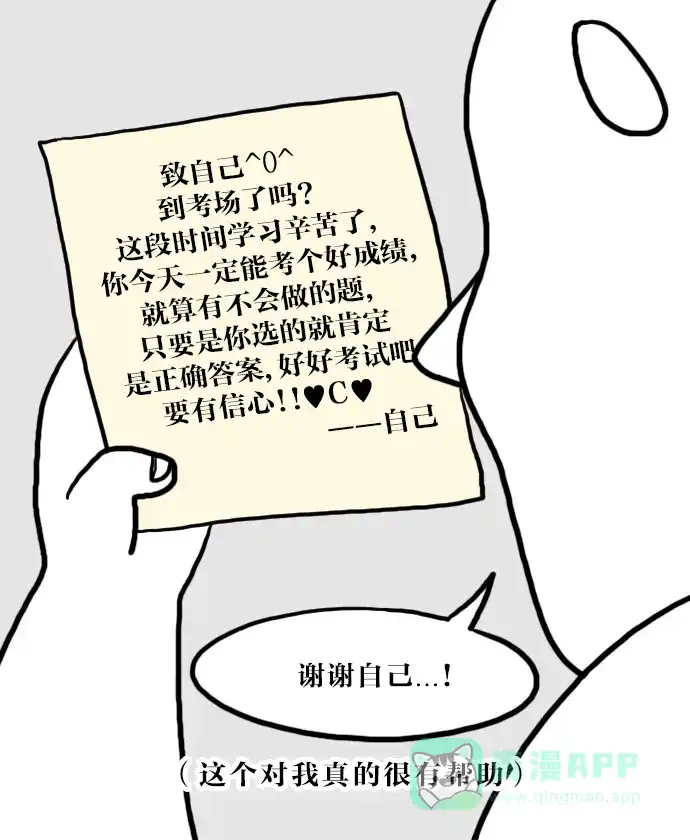 致自己^0^
到考场了吗?
这段时间学习辛苦了,
你今天一定能考个好成绩,
就算有不会做的题,
只要是你选的就肯定
是正确答案, 好好考试吧
要有信心!!♥C♥
——自己
谢谢自己...!
(这个对我真的很有帮助)
漫APP
www.qingmao.app